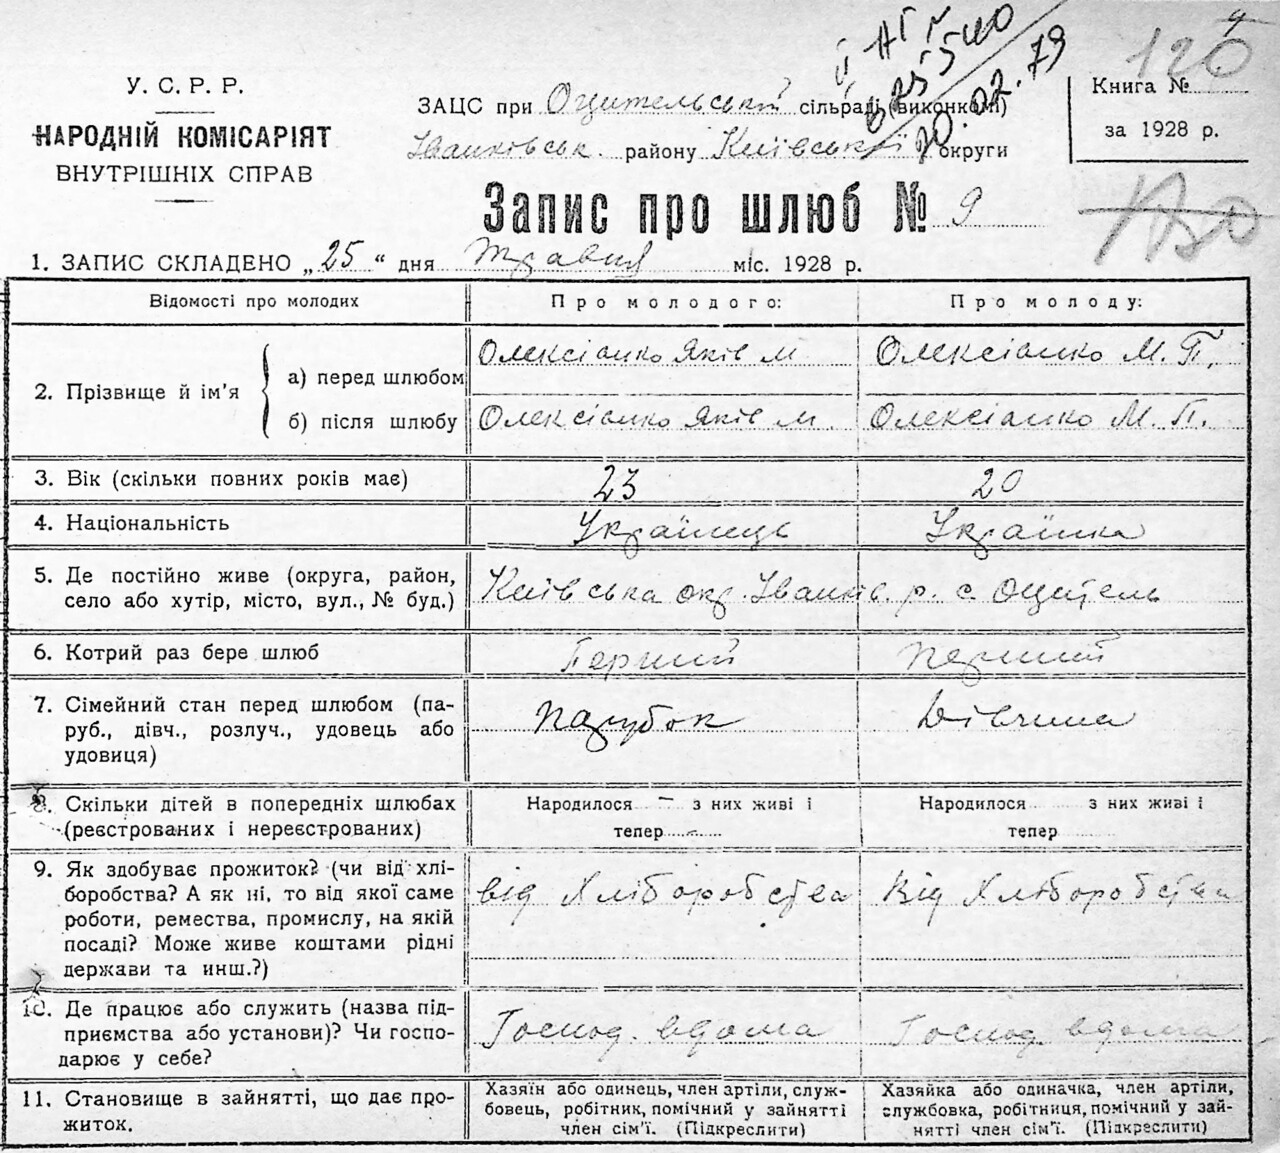 У. С. Р. Р.
НАРОДНІЙ КОМІСАРІЯТ
ВНУТРІШНІХ СПРАВ
ЗАЦС при Оцительській сільраді (виконкомі)
Іванковськ. району Київської округи
20.02.79
120
Книга №
за 1928 р.
Запис про шлюб № 9
1. ЗАПИС СКЛАДЕНО „25“ дня Травня міс. 1928 р.
Відомості про молодих
Про молодого:
Про молоду:
2. Прізвище й ім'я
а) перед шлюбом
Олексієнко Яків М
Олексієнко М. П.
б) після шлюбу
Олексієнко Яків М.
Олексієнко М. П.
3. Вік (скільки повних років має)
23
20
4. Національність
Українець
Українка
5. Де постійно живе (округа, район,
село або хутір, місто, вул., № буд.)
Київська окр. Іванків. р. с. Оцитель
6. Котрий раз бере шлюб
Перший
перший
7. Сімейний стан перед шлюбом (па-
руб., дівч., розлуч., удовець або
удовиця)
парубок
Дівчина
8. Скільки дітей в попередніх шлюбах
(реєстрованих і нереєстрованих)
Народилося – з них живі і
тепер -
Народилося з них живі і
тепер
9. Як здобуває прожиток? (чи від хлі-
боробства? А як ні, то від якої саме
роботи, ремества, промислу, на якій
посаді? Може живе коштами рідні
держави та инш.?)
від Хліборобства
Від Хліборобства
10. Де працює або служить (назва під-
приємства або установи)? Чи госпо-
дарює у себе?
Господ. вдома
Господ. вдома
11. Становище в зайнятті, що дає про-
житок.
Хазяїн або одинець, член артіли, служ-
бовець, робітник, помічний у зайнятті
член сім'ї. (Підкреслити)
Хазяйка або одиначка, член артіли,
службовка, робітниця, помічний у зай-
нятті член сім'ї. (Підкреслити)